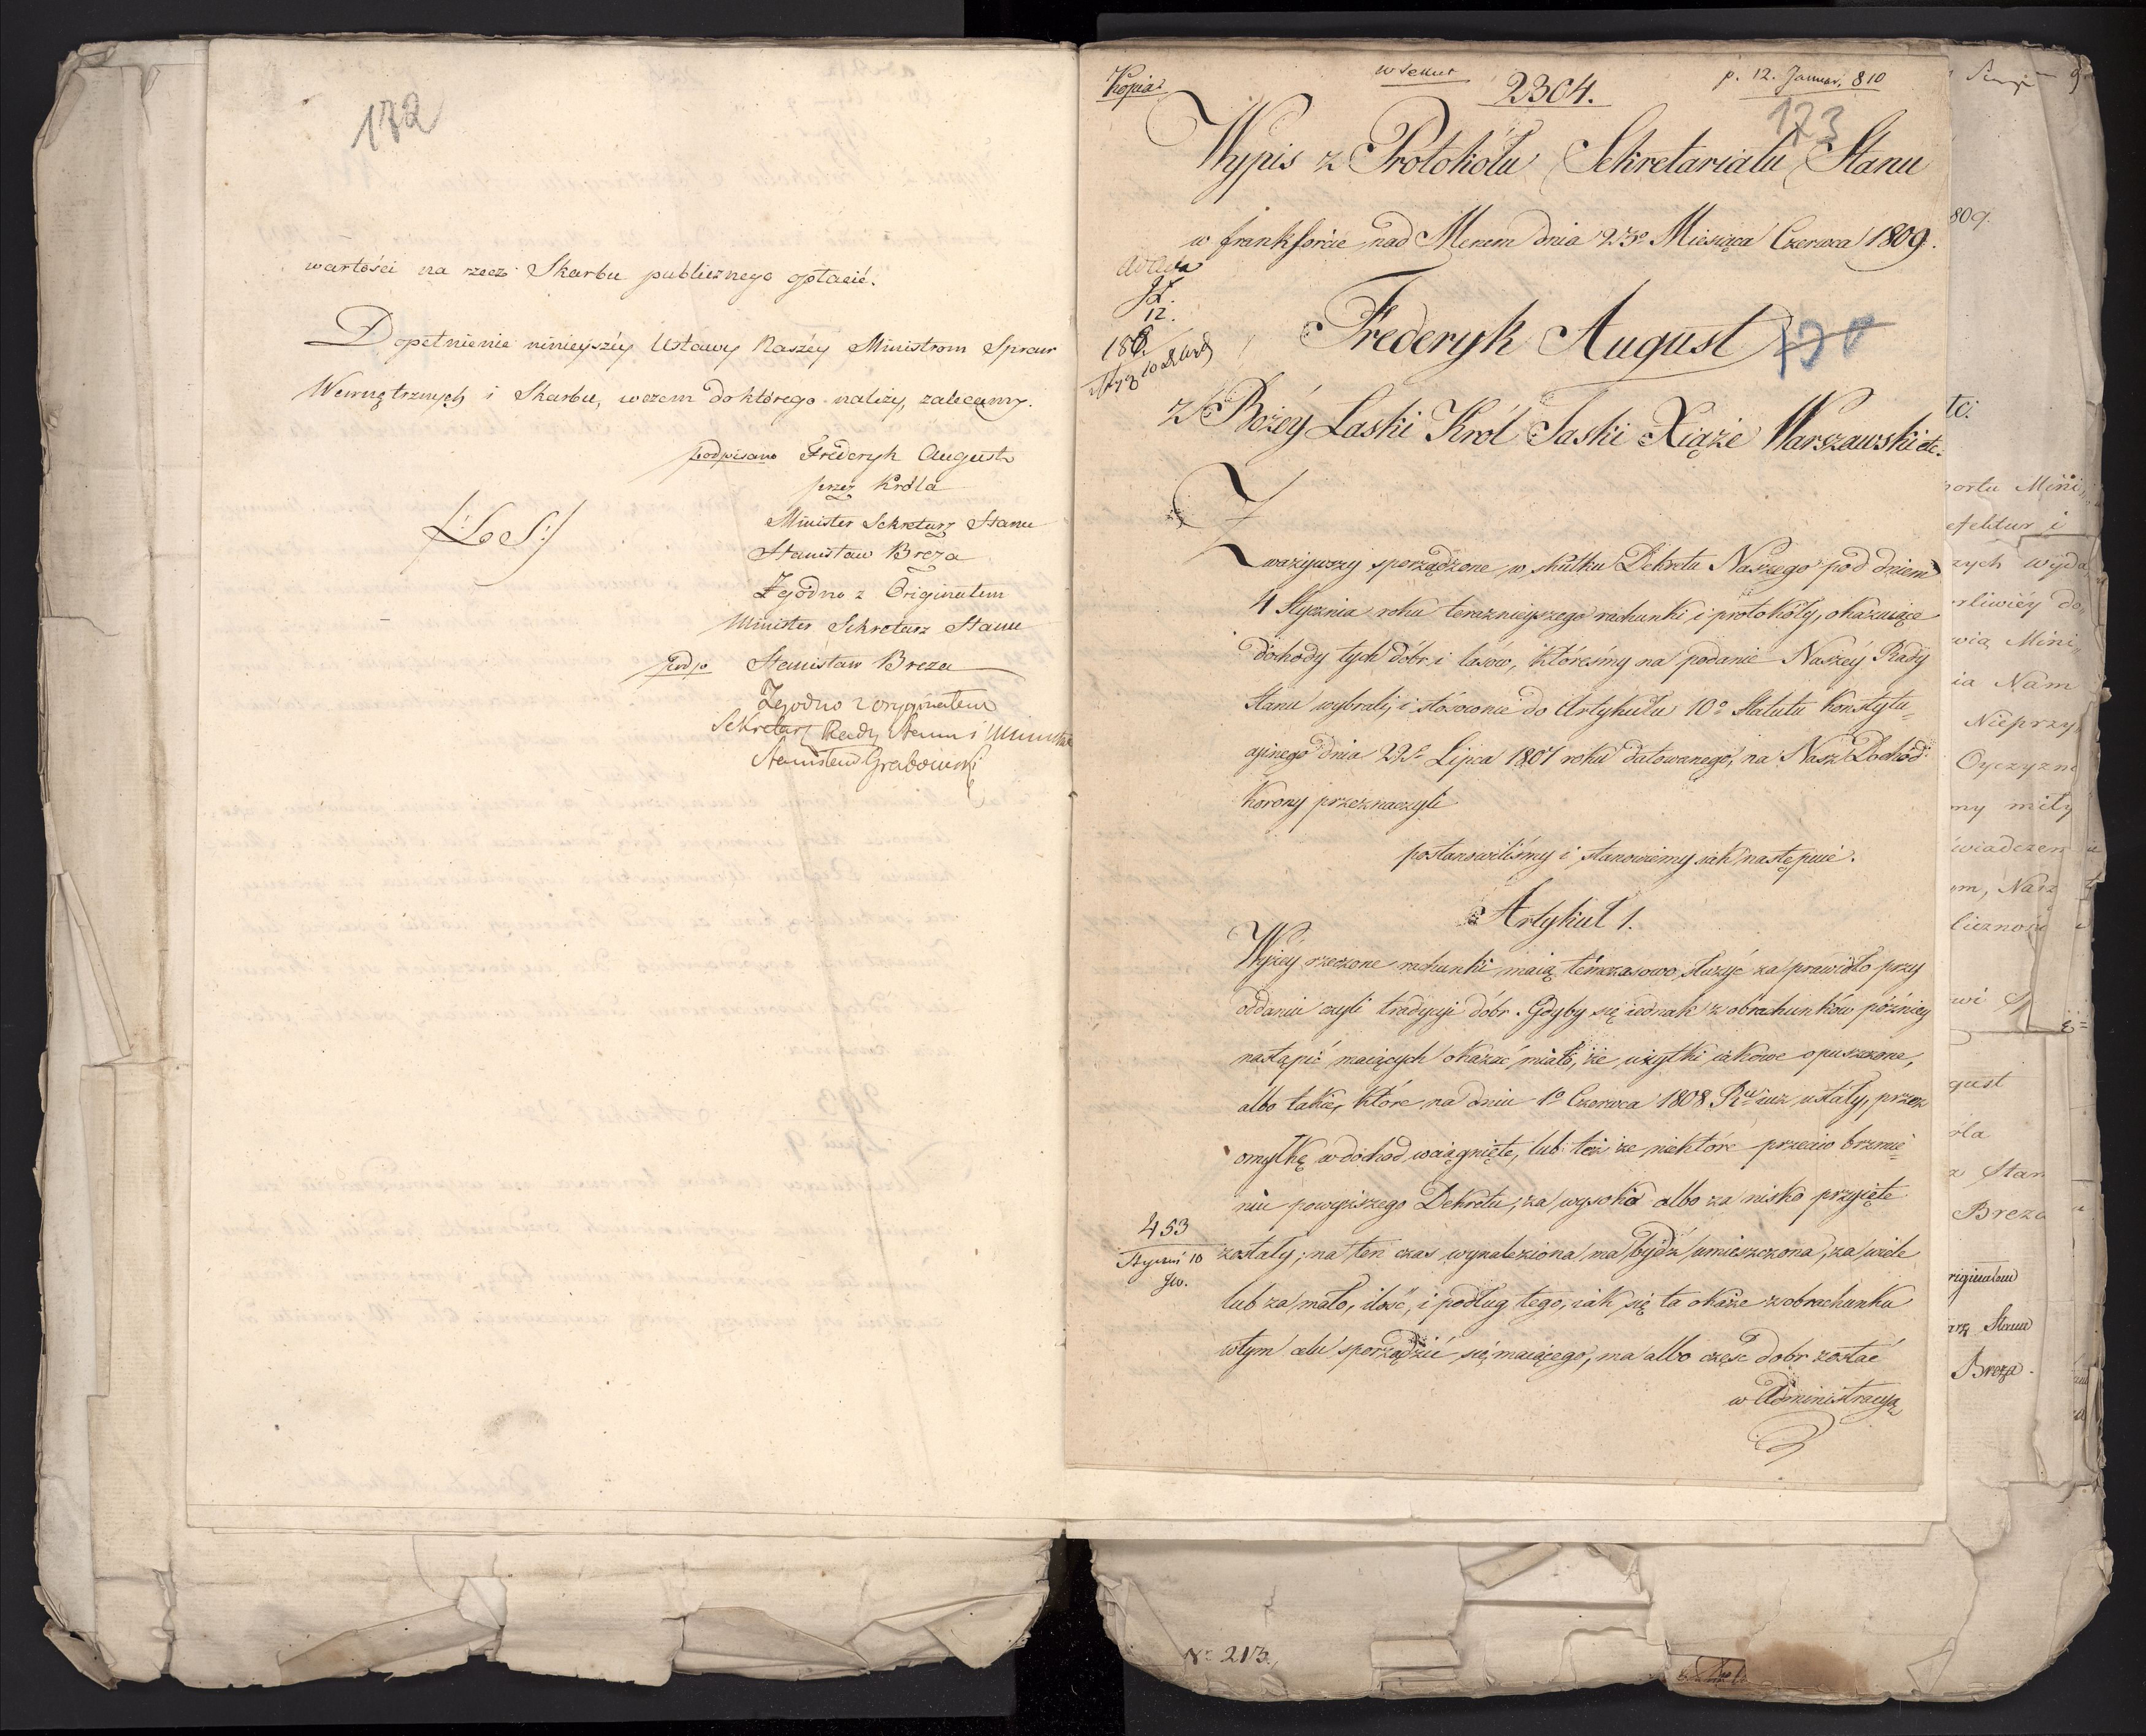 172
wartości na rzecz Skarbu publicznego opłacić.
Dopełnienie ninieyszéy Ustawy Naszéy Ministrom Spraw
Wewnętrznych i Skarbu, wczem do którego należy, zalecamy.
podpisano Frederyk August
przez Króla
Minister Sekretarz Stanu
Stanisław Breza
/:L. S:/
Zgodno z Originałem
Minister Sekretarz Stanu
podp Stanisław Breza
Zgodno z oryginałem
Sekretarz Rady Stanu i Ministrów
Stanisław Grabowski
Kopia
2304.
p. 12. Januar. 810
173
Wypis z Protokółu Sekretariatu Stanu
w Frankforcie nad Menem dnia 23o Miesiąca Czerwca 1809.
ad acta
12.
Frederyk August
z Bożéy Łaski Król Saski Xiąże Warszawski etc.
Zważywszy sporządzone w skutku Dekretu Naszego pod dniem
4 Stycznia roku teraznieyszego rachunki i protokóły, okazuiące
dochody tych dóbr i lasów, któreśmy na podanie Naszéy Rady
Stanu wybrali, i stósownie do Artykułu 10o Statutu Konstytu=
cyinego dnia 22o Lipca 1807 roku datowanego, na Nasz Dochód
Korony przeznaczyli
postanowiliśmy i stanowiemy iak następuie.
Artykuł 1.
Wyżéy rzeczone rachunki maią témczasowo służyć za prawidło przy
oddaniu czyli tradycyi dóbr. Gdyby się iednak z obrachunków późniéy
nastąpić maiących okazać miało, że użytki iakowe opuszczone,
albo takie, które na dniu 1o Czerwca 1808 Ru iuż ustały, przez
omyłkę w dochod wciągnięte, lub też że niektóre przeciw brzmie=
niu powyższego Dekretu, za wysoko albo za nisko przyięte
zostały; na ten czas wynaleziona ma bydź umieszczona, za wiele
lub za mało, ilość, i podług tego, iak się ta okaże z obrachunku
wtym celu sporządzić się maiącego, ma albo część dobr zostać
w Administracyą
453
Stycznia 10
Nr. 213.